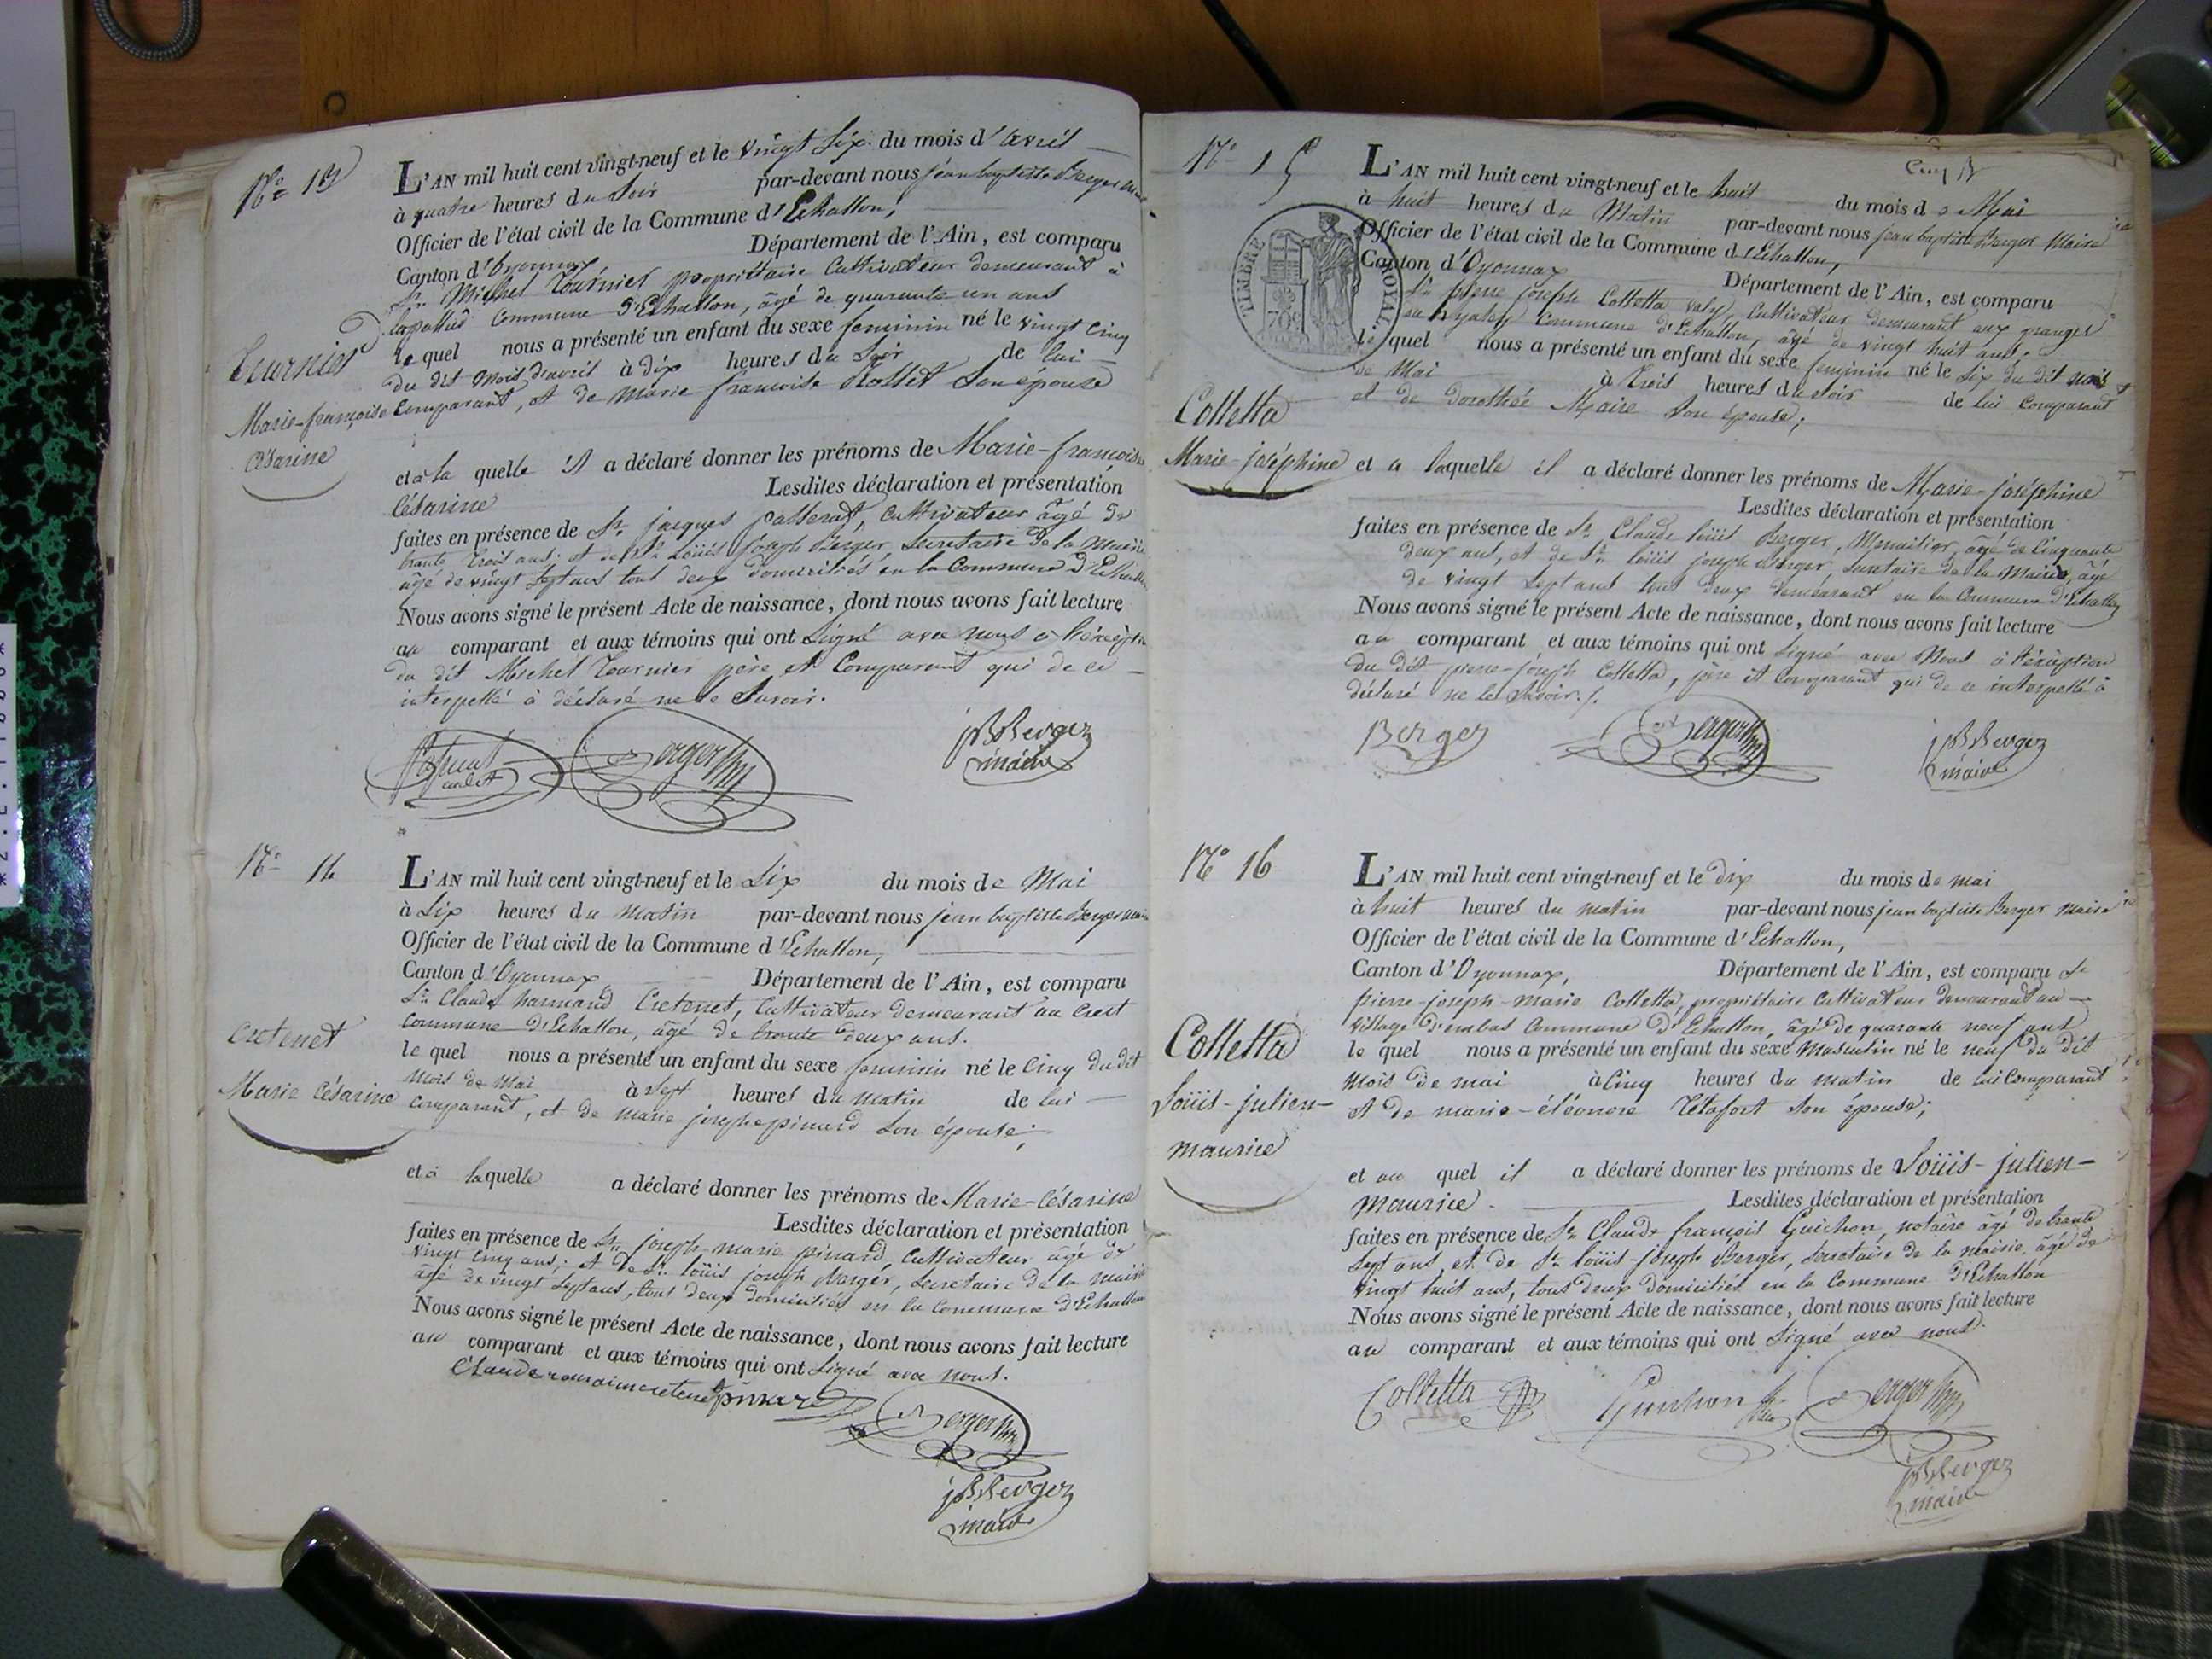 N.o 13
L'AN mil huit cent vingt-neuf et le vingt six du mois d'avril
à quatre heures du soir par-devant nous jean baptiste Berger maire
Officier de l'état civil de la Commune d'Echallon,
Canton d'Oyonnax Département de l'Ain, est comparu
Sr. Michel Tournier propriétaire Cultivateur demeurant à
Commune d'Echallon, âgé de quarante un ans
Tournier
le quel nous a présenté un enfant du sexe feminin né le vingt cinq
du dit mois d'avril à dix heures du Soir de lui
Marie-françoise
Césarine
Comparant, et de marie francoise Rollet Son épouse
et à la quelle il a déclaré donner les prénoms de Marie-françoise
Césarine Lesdites déclaration et présentation
faites en présence de Sr. jacques passerat, cultivateur âgé de
trente trois ans; et de Sr. Loüis joseph Berger, Secretaire de la Mairie
âgé de vingt Sept ans tous deux domiciliés en la Commune d'Echallon
Nous avons signé le présent Acte de naissance, dont nous avons fait lecture
au comparant et aux témoins qui ont Signé avec nous à l'exception
du dit Michel Tournier père et Comparant qui de ce
interpellé à déclaré ne le Savoir.
Berger
jB Berger
maire
N.o 14
L'AN mil huit cent vingt-neuf et le Six du mois de Mai
à Six heures du matin par-devant nous jean baptiste Berger maire
Officier de l'état civil de la Commune d'Echallon,
Canton d'Oyonnax Département de l'Ain, est comparu
Sr. Claude Cretenet, Cultivateur demeurant au Crest
Commune d'Echallon, âgé de trente deux ans.
Cretenet
le quel nous a présenté un enfant du sexe feminin né le Cinq du dit
mois de mai à Sept heures du matin de lui
Marie Césarine
comparant, et de marie josephe pinard Son épouse;
et à laquelle a déclaré donner les prénoms de Marie-Césarine
Lesdites déclaration et présentation
faites en présence de Sr. joseph-marie pinard, Cultivateur âgé de
vingt cinq ans; et de Sr. loüis joseph Berger, Secretaire de la mairie
âgé de vingt Sept ans, tous deux domiciliés en la Commune d'Echallon
Nous avons signé le présent Acte de naissance, dont nous avons fait lecture
au comparant et aux témoins qui ont Signé avec nous.
Claude cretenet pinard
Berger
jB Berger
maire
N.o 15
L'AN mil huit cent vingt-neuf et le huit du mois de Mai
à huit heures du Matin par-devant nous jean baptiste Berger Maire
Officier de l'état civil de la Commune d'Echallon,
Canton d'Oyonnax Département de l'Ain, est comparu
TIMBRE ROYAL
70c
Sr. pierre joseph Colletta Cultivateur demeurant aux granges
Commune d'Echallon, âgé de vingt huit ans,
le quel nous a présenté un enfant du sexe feminin né le Six du dit mois
de Mai à trois heures du soir de lui Comparant
Colletta
et de dorothée Maire Son épouse;
Marie-joséphine
et a laquelle il a déclaré donner les prénoms de Marie-joséphine
Lesdites déclaration et présentation
faites en présence de Sr. Claude loüis Berger, Menuisier, âgé de Cinquante
deux ans, et de Sr. loüis joseph Berger, Secretaire de la Mairie, âgé
de vingt Sept ans tous deux demeurant en la Commune d'Echallon
Nous avons signé le présent Acte de naissance, dont nous avons fait lecture
au comparant et aux témoins qui ont signé avec Nous à l'éxception
du dit pierre-joseph Colletta, père et Comparant qui de ce interpellé à
déclaré ne le Savoir./.
Berger
Berger
jB Berger
maire
N.o 16
L'AN mil huit cent vingt-neuf et le dix du mois de mai
à huit heures du matin par-devant nous jean baptiste Berger maire
Officier de l'état civil de la Commune d'Echallon,
Canton d'Oyonnax, Département de l'Ain, est comparu Sr
pierre-joseph-marie Colletta, propriétaire Cultivateur demeurant au
Village d'embas Commune d'Echallon, âgé de quarante neuf ans
Colletta
le quel nous a présenté un enfant du sexe Masculin né le neuf du dit
mois de mai à Cinq heures du matin de lui Comparant
Loüis-julien-
maurice
et de marie-éléonore Tétafort Son épouse;
et au quel il a déclaré donner les prénoms de Loüis-julien-
maurice. Lesdites déclaration et présentation
faites en présence de Sr. Claude françois Guichon, notaire âgé de trente
Sept ans, et de Sr. loüis-joseph Berger, Secretaire de la mairie âgé de
vingt huit ans, tous deux Domiciliés en la Commune d'Echallon
Nous avons signé le présent Acte de naissance, dont nous avons fait lecture
au comparant et aux témoins qui ont Signé avec nous.
Colletta
Guichon
Berger
jB Berger
maire